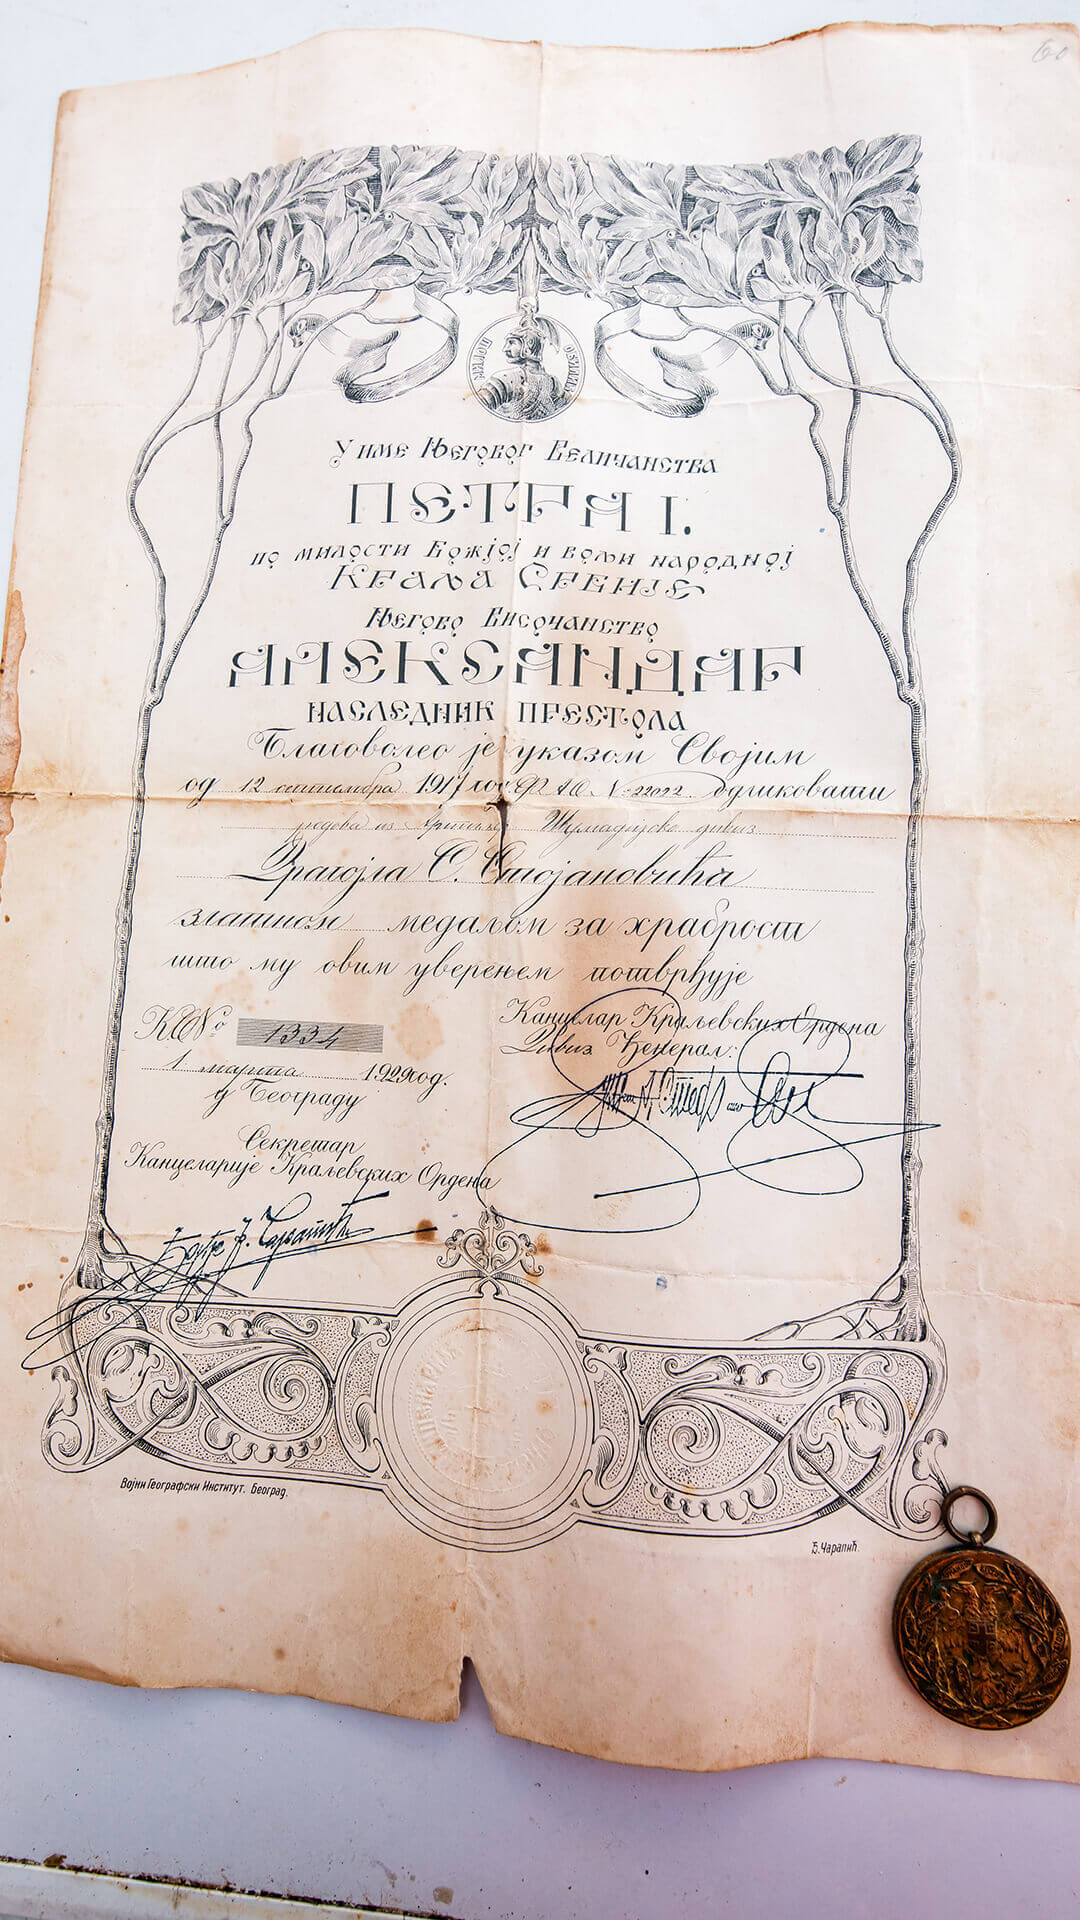 60
МИЛОШ ОБИЛИЋ
У име Његовог Величанства
ПЕТРА I.
по милости Божјој и вољи народној
Краља Србије
Његово Височанство
АЛЕКСАНДАР
НАСЛЕДНИК ПРЕСТОЛА
Благоволео је указом Својим
од 12 септембра 1917 год. ФАО № 22022 одликовати
редова из Шумадијске дивиз.
Драгојла С. Стојановића
златном медаљом за храброст
што му овим уверењем потврђује
КО№ 1334
1 марта 1929 год.
у Београду
Канцелар Краљевских Ордена
Дивиз. Ђенерал:
Секретар
Канцеларије Краљевских Ордена
Војни Географски Институт. Београд.
Ђ. Чарапић.